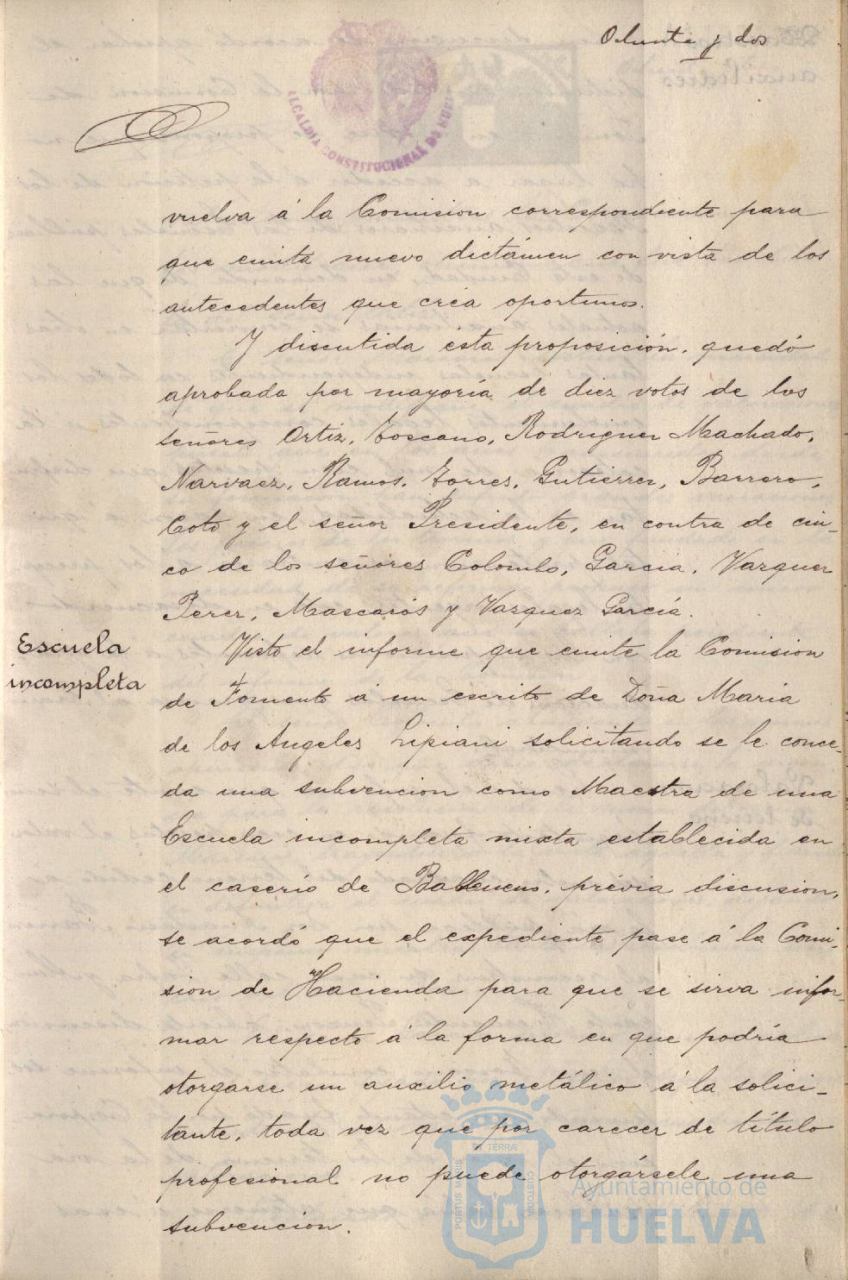 Ochenta y dos
ALCALDIA CONSTITUCIONAL DE
vuelva á la Comision correspondiente para
que emita nuevo dictámen con vista de los
antecedentes que crea oportunos.
Y discutida ésta proposición, quedó
aprobada por mayoría de diez votos de los
señores Ortiz, Toscano, Rodriguez Machado,
Narvaez, Ramos, Torres, Gutierrez, Barrero,
Coto y el señor Presidente, en contra de cin-
co de los señores Colombo, Garcia, Vazquez
Perez, Mascarós y Vazquez García.
Escuela
incompleta
Visto el informe que emite la Comision
de Fomento á un escrito de Doña Maria
de los Angeles Lipiani solicitando se le conce-
da una subvencion como Maestra de una
Escuela incompleta mixta establecida en
el caserío de, prévia discusion,
se acordó que el expediente pase á la Comi-
sion de Hacienda para que se sirva infor-
mar respecto á la forma en que podría
otorgarse un auxilio metálico á la solici-
tante, toda vez que por carecer de título
profesional no puede otorgársele una
subvencion.
PORTUS MARIS ET TERRAE CUSTODIA
Ayuntamiento de
HUELVA